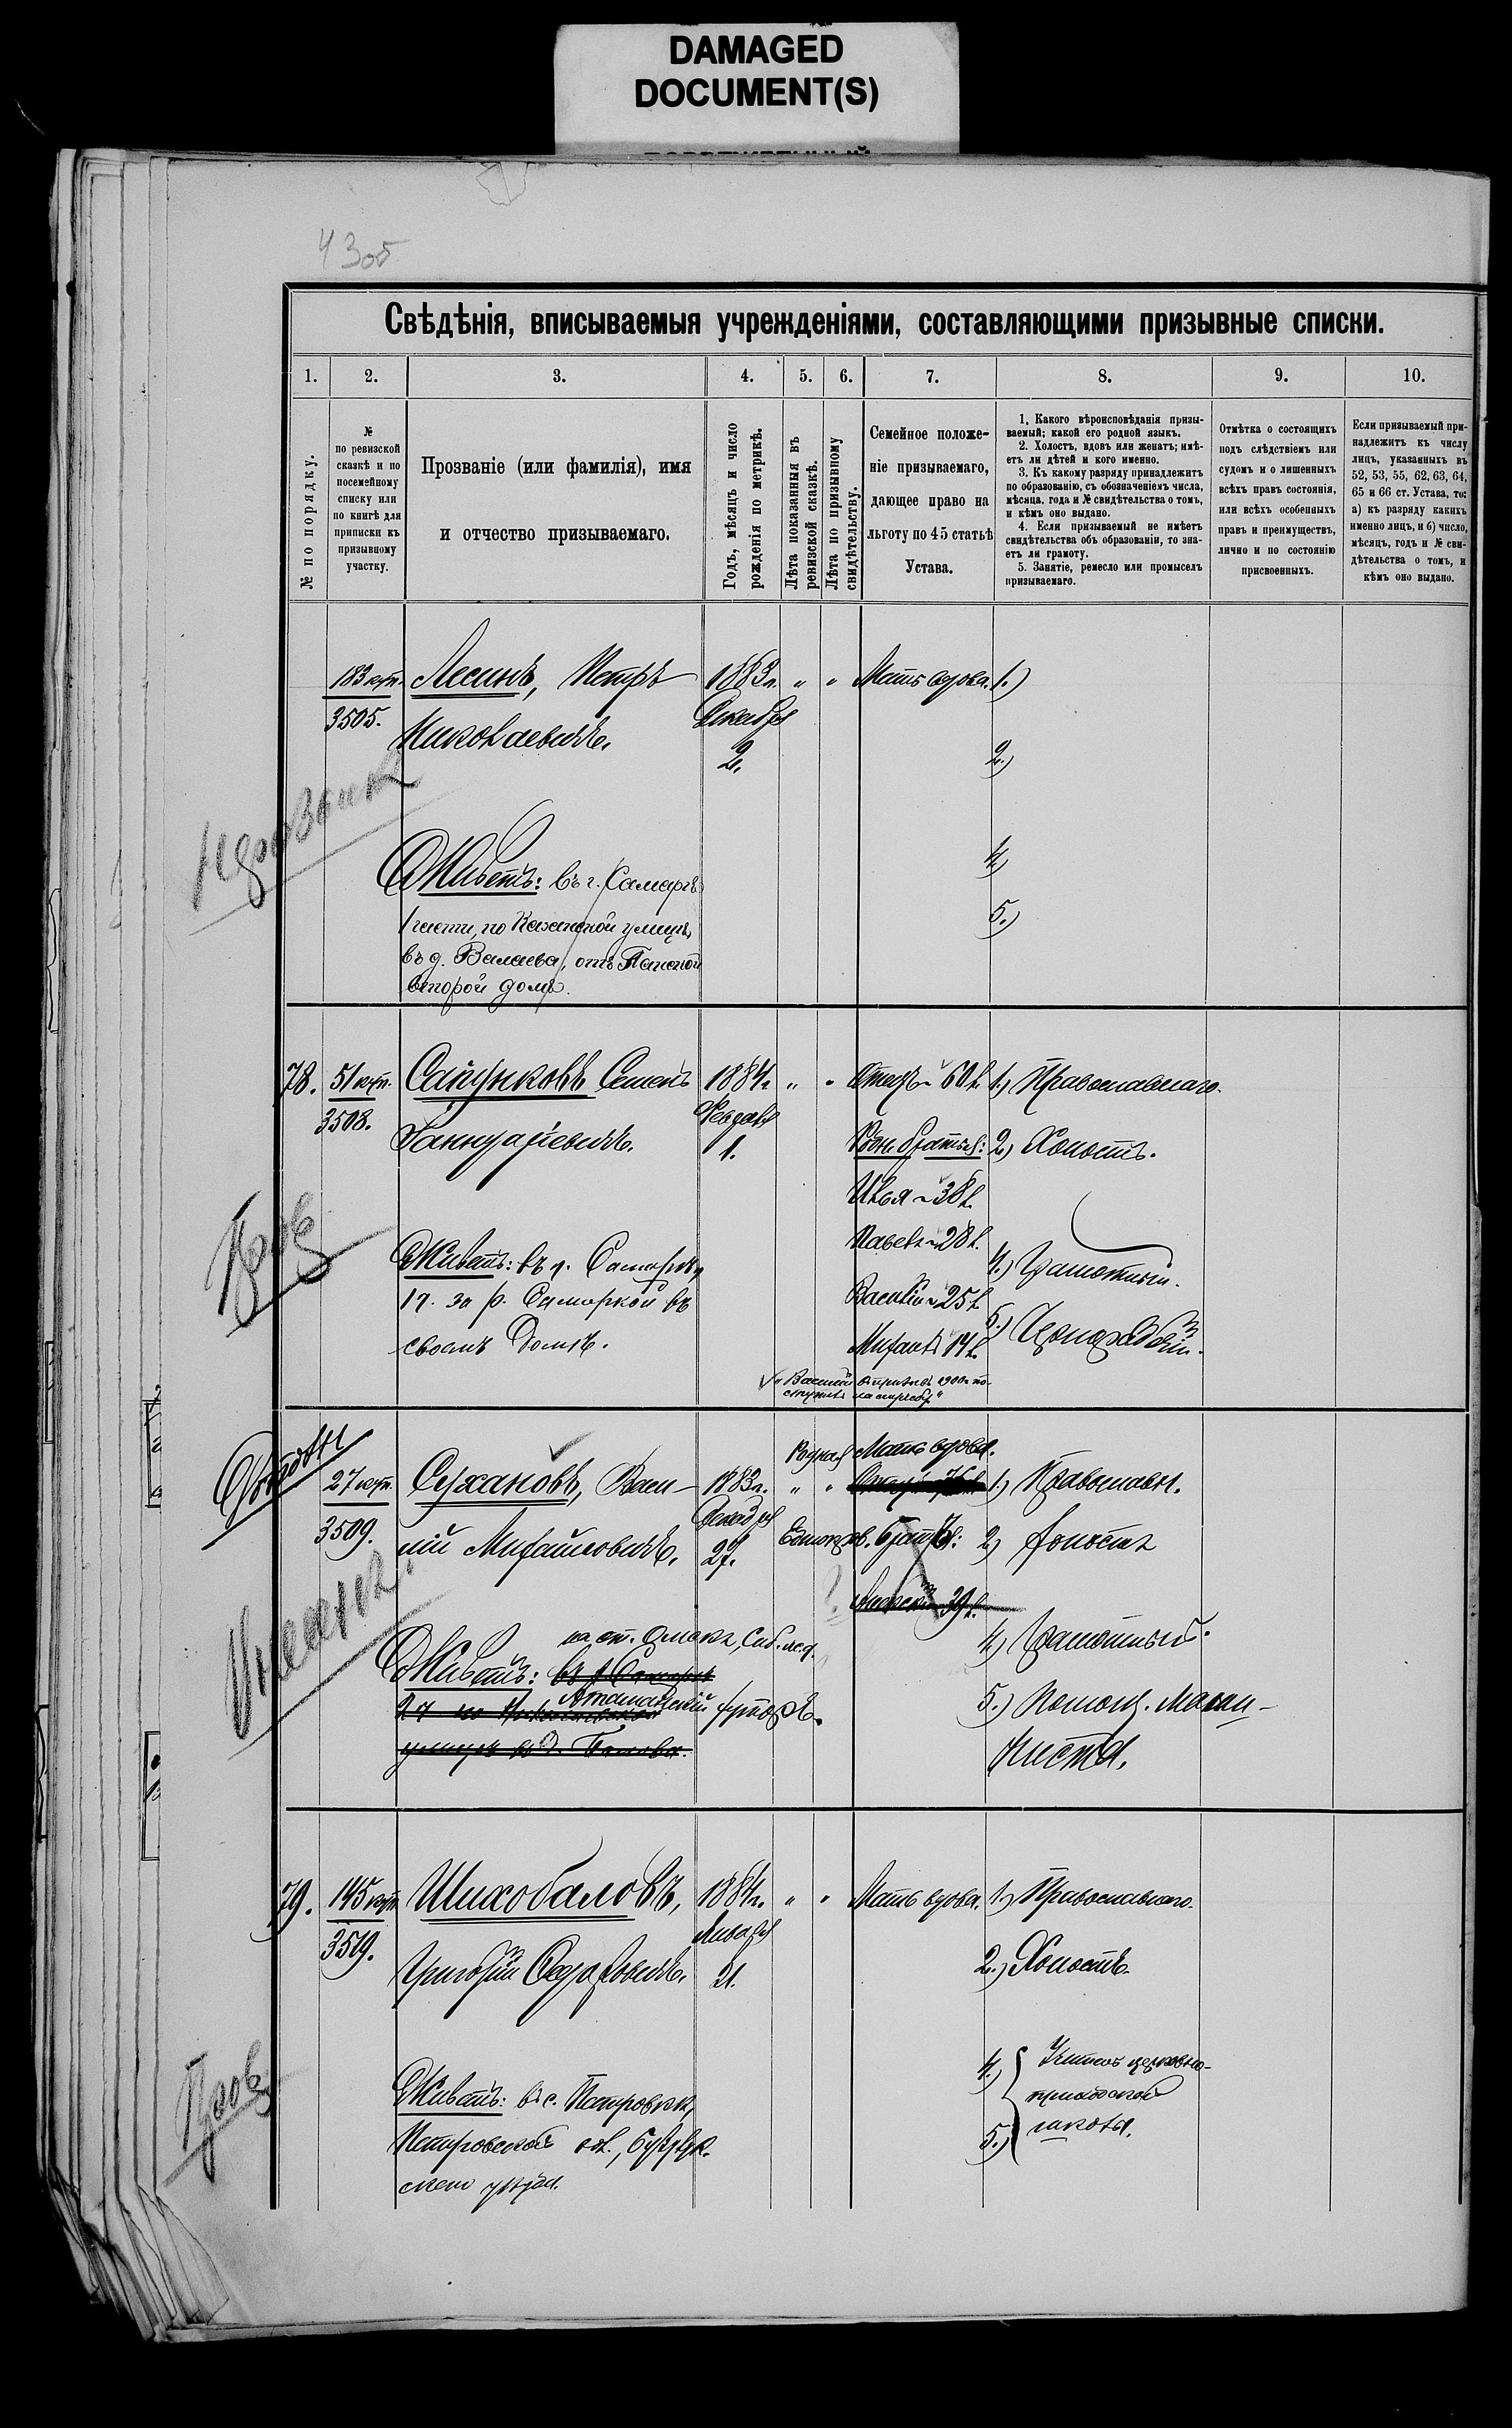 DAMAGED
DOCUMENT(S)
43об
Свѣдѣнія, вписываемыя учрежденіями, составляющими призывные списки.
1. 2. 3. 4. 5. 6. 7. 8. 9. 10.
№ по порядку.
№
по ревизской
сказкѣ и по
посемейному
списку или
по книгѣ для
приписки къ
призывному
участку.
Прозваніе (или фамилія), имя
и отчество призываемаго.
Годъ, мѣсяцъ и число
рожденія по метрикѣ.
Лѣта показанныя въ
ревизской сказкѣ.
Лѣта по призывному
свидѣтельству.
Семейное положе-
ніе призываемаго,
дающее право на
льготу по 45 статьѣ
Устава.
1. Какого вѣроисповѣданія призы-
ваемый; какой его родной языкъ.
2. Холостъ, вдовъ или женатъ; имѣ-
етъ ли дѣтей и кого именно.
3. Къ какому разряду принадлежитъ
по образованію, съ обозначеніемъ числа,
мѣсяца, года и № свидѣтельства о томъ,
и кѣмъ оно выдано.
4. Если призываемый не имѣетъ
свидѣтельства объ образованіи, то зна-
етъ ли грамоту.
5. Занятіе, ремесло или промыселъ
призываемаго.
Отмѣтка о состоящихъ
подъ слѣдствіемъ или
судомъ и о лишенныхъ
всѣхъ правъ состоянія,
или всѣхъ особенныхъ
правъ и преимуществъ,
лично и по состоянію
присвоенныхъ.
Если призываемый при-
надлежитъ къ числу
лицъ, указанныхъ въ
52, 53, 55, 62, 63, 64,
65 и 66 ст. Устава, то:
а) къ разряду какихъ
именно лицъ, и б) число,
мѣсяцъ, годъ и № сви-
дѣтельства о томъ, и
кѣмъ оно выдано.
183 куп. Лесинъ, Петръ 1883г. " " Мать вдова. 1.)
3505. Николаевичъ. Декабря
2. 2.)
4.)
Живетъ: въ г. Самарѣ
1 части, по Казанской улицѣ, 5.)
въ д. Валаева, отъ Панской
второй домъ.
78. 51 куп. Сапунковъ Семенъ 1884г. " " Отецъ 60 л. 1.) Православнаго.
3508. Февраля
1. Родн. братья: 2.) Холостъ.
Илья 38 л.
Павелъ 28 л.
Живетъ: въ г. Самарѣ, 4.) Грамотный.
1ч. за р. Самаркой въ Василій 25 л.
своемъ домѣ. Михаилъ 14 л. 5.) Чернорабочій.
"Василій въ призывъ 1900г. по-
27 куп. Сухановъ, Васи- 1882г. " " Родная Мать вдова. 1.) Православн.
3509. лій Михайловичъ. Декабря
27. Единокров. братья: 2.) Холостъ
Алексѣй 39 л.
на ст. Омскъ, Сиб. ж.д.
Живетъ: въ г. Самарѣ 4.) Грамотный.
Атаманскій хуторъ. 5.) Помощ. Маши-
улицѣ въ д. Попова. ниста.
79. 145 куп. Шихобаловъ, 1884г. " " Мать вдова. 1.) Православнаго.
3519. Января
Григорій Федоровичъ. 21. 2.) Холостъ.
4.) Учитель церковно-
Живетъ: въ с. Петровкѣ, приходской
Петровской вол., Бузулук- 5.) школы.
скаго уѣзда.